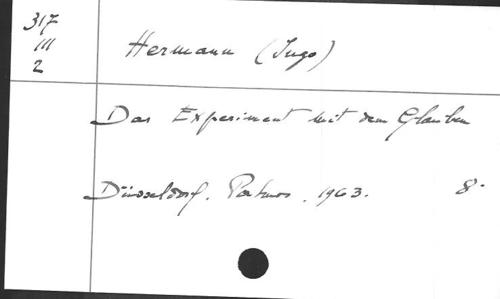 317
III
2
Hermann (Ingo)
Das Experiment mit dem Glauben
Düsseldorf. Patmos. 1963. 8°